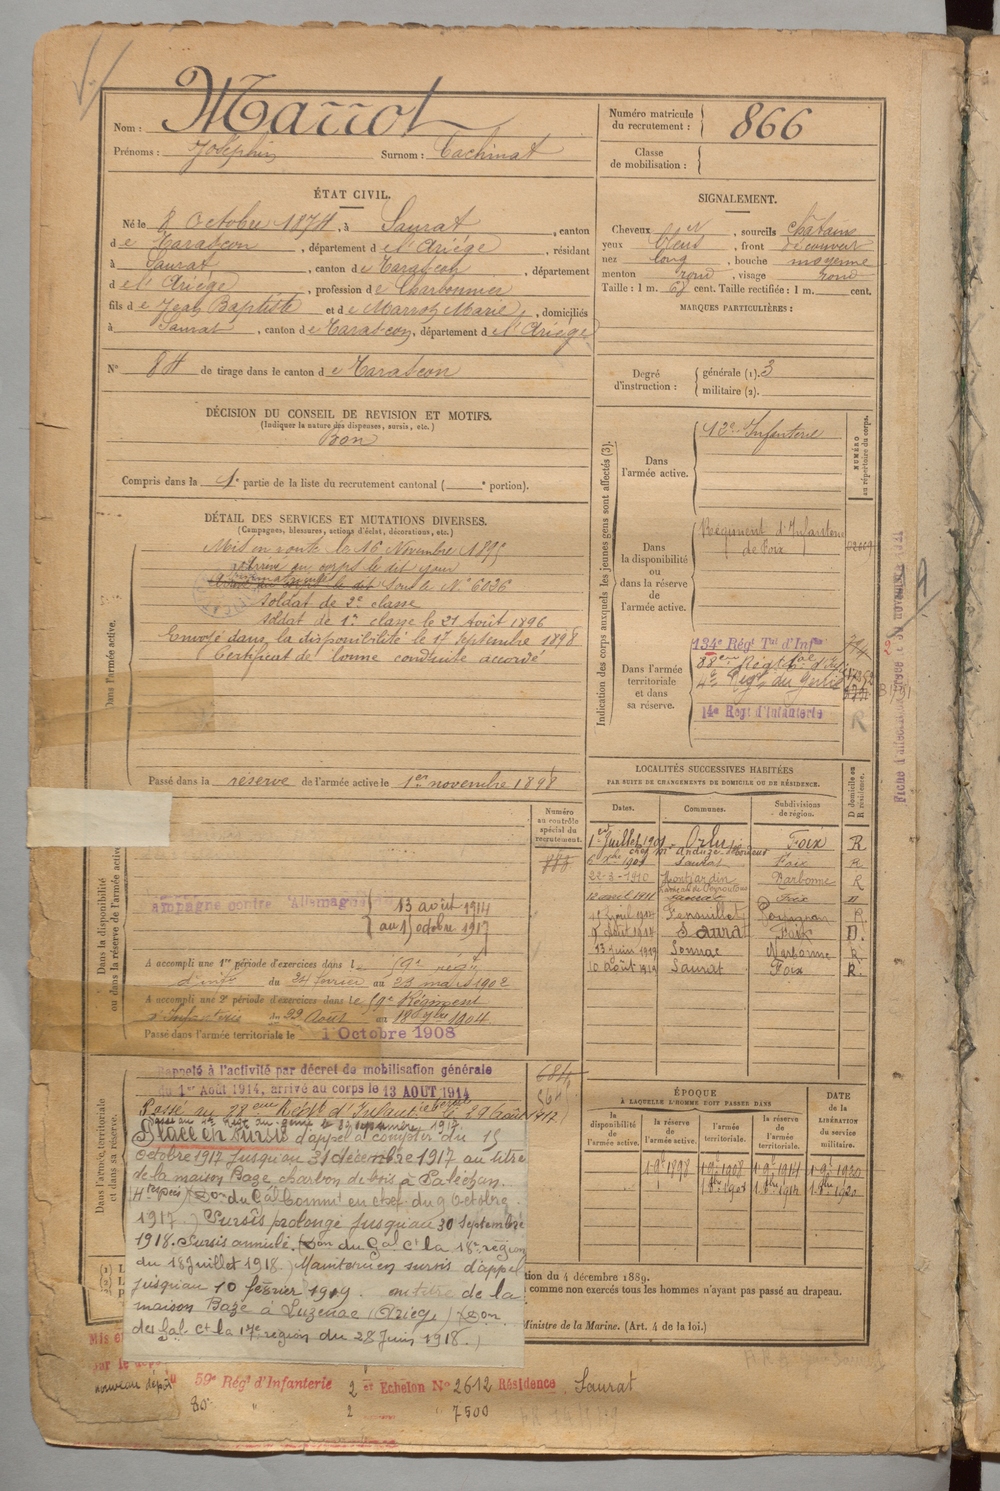 Nom : Marrot
Prénoms : Joséphin Surnom : Cachinat
Numéro matricule du recrutement : 866
Classe de mobilisation :
ÉTAT CIVIL.
Né le 8 Octobre 1874, à Saurat, canton
de Tarascon, département de l'Ariége, résidant
à Saurat, canton de Tarascon, département
de l'Ariége, profession de Charbonnier
fils de Jean Baptiste et de Marrot Marie, domiciliés
à Saurat, canton de Tarascon, département de l'Ariége
N° 84 de tirage dans le canton de Tarascon
SIGNALEMENT.
Cheveux et, sourcils châtains
yeux bleus, front découvert
nez long, bouche moyenne
menton rond, visage rond
Taille : 1 m. 68 cent. Taille rectifiée : 1 m. cent.
MARQUES PARTICULIÈRES :
Degré d'instruction : générale (1). 3
militaire (2).
DÉCISION DU CONSEIL DE REVISION ET MOTIFS.
(Indiquer la nature des dispenses, sursis, etc.)
Bon
Compris dans la 1e partie de la liste du recrutement cantonal ( e portion).
DÉTAIL DES SERVICES ET MUTATIONS DIVERSES.
(Campagnes, blessures, actions d'éclat, décorations, etc.)
Dans l'armée active.
Mis en route le 16 Novembre 1895
arrivé au corps le dit jour
sous le N° 6026
soldat de 2e classe
soldat de 1e classe le 21 Août 1896
Envoyé dans la disponibilité le 17 Septembre 1898
Certificat de bonne conduite accordé
Passé dans la réserve de l'armée active le 1er novembre 1898
Indication des corps auxquels les jeunes gens sont affectés (3).
NUMÉRO au répertoire du corps.
Dans l'armée active.
12e Infanterie
Dans la disponibilité ou dans la réserve de l'armée active.
Régiment d'Infanterie
de Foix
Dans l'armée territoriale et dans sa réserve.
134e Régt Tal d'Infie
88eme Régt
4e Régt du Génie
14e Régt d'Infanterie
R
Numéro au contrôle spécial du recrutement.
888
Dans la disponibilité ou dans la réserve de l'armée active
ampagne contre l'Allemagne
13 août 1914
au 15 octobre 1917
A accompli une 1re période d'exercices dans l 59e régt
d'infie du 24 février au 23 mars 1902
A accompli une 2e période d'exercices dans le 59e Régiment
d'Infanterie du 22 Août au 18 7bre 1904
Passé dans l'armée territoriale le 1 Octobre 1908
LOCALITÉS SUCCESSIVES HABITÉES
PAR SUITE DE CHANGEMENTS DE DOMICILE OU DE RÉSIDENCE.
Dates. Communes. Subdivisions de région. D domicile ou R résidence.
1er Juillet 1901 Orlu Foix R
Saurat Foix R
22-3-1910 Montjardin Narbonne R
12 avril 1911 Saurat Foix
Perpignan R.
Saurat Foix D.
13 juin 1919 Sonnac Narbonne R.
10 août 1919 Saurat Foix R.
Dans l'armée territoriale et dans sa réserve.
Rappelé à l'activité par décret de mobilisation générale
du 1er Août 1914, arrivé au corps le 13 AOUT 1914
684
564
Passé au 28eme Régt d'Infanterie le 29 Août 1917
Passé au 4e Régt du génie le 12 septembre 1917
Placé en sursis d'appel à compter du 15
octobre 1917 jusqu'au 31 décembre 1917 au titre
de la maison Baze charbon de bois à
Don du Gal Commt en chef du 9 Octobre
1917.) Sursis prolongé jusqu'au 30 septembre
1918. Sursis annulé. (Don du Gal Ct la 18e région
du 18 juillet 1918.) Maintenu en sursis d'appel
jusqu'au 10 février 1919. au titre de la
maison Baze à Luzenac (Ariège) (Don
du Gal Ct la 17e région du 28 Juin 1918.)
ÉPOQUE
À LAQUELLE L'HOMME DOIT PASSER DANS
la disponibilité de l'armée active. la réserve de l'armée active. l'armée territoriale. la réserve de l'armée territoriale. DATE de la LIBÉRATION du service militaire.
1 9e 1898 1 9e 1908 1 9e 1914 1 9e 1920
tion du 4 décembre 1889.
comme non exercés tous les hommes n'ayant pas passé au drapeau.
Ministre de la Marine. (Art. 4 de la loi.)
nouveau dépôt
59e Régt d'Infanterie 2 et Echelon No 2612 Résidence Saurat
80 " 2 " 7500